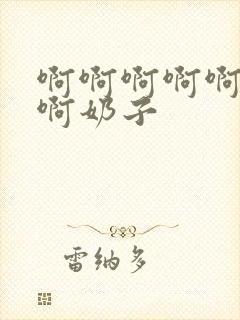 啊啊啊啊啊
啊奶子
雷纳多